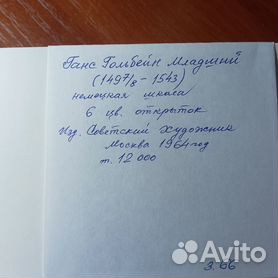 Ганс Гольбейн Младший
(1497/8 – 1543)
немецкая школа
6 цв. открыток
Изд. Советский художник
Москва 1964 год
т. 12 000
3.66
Avito